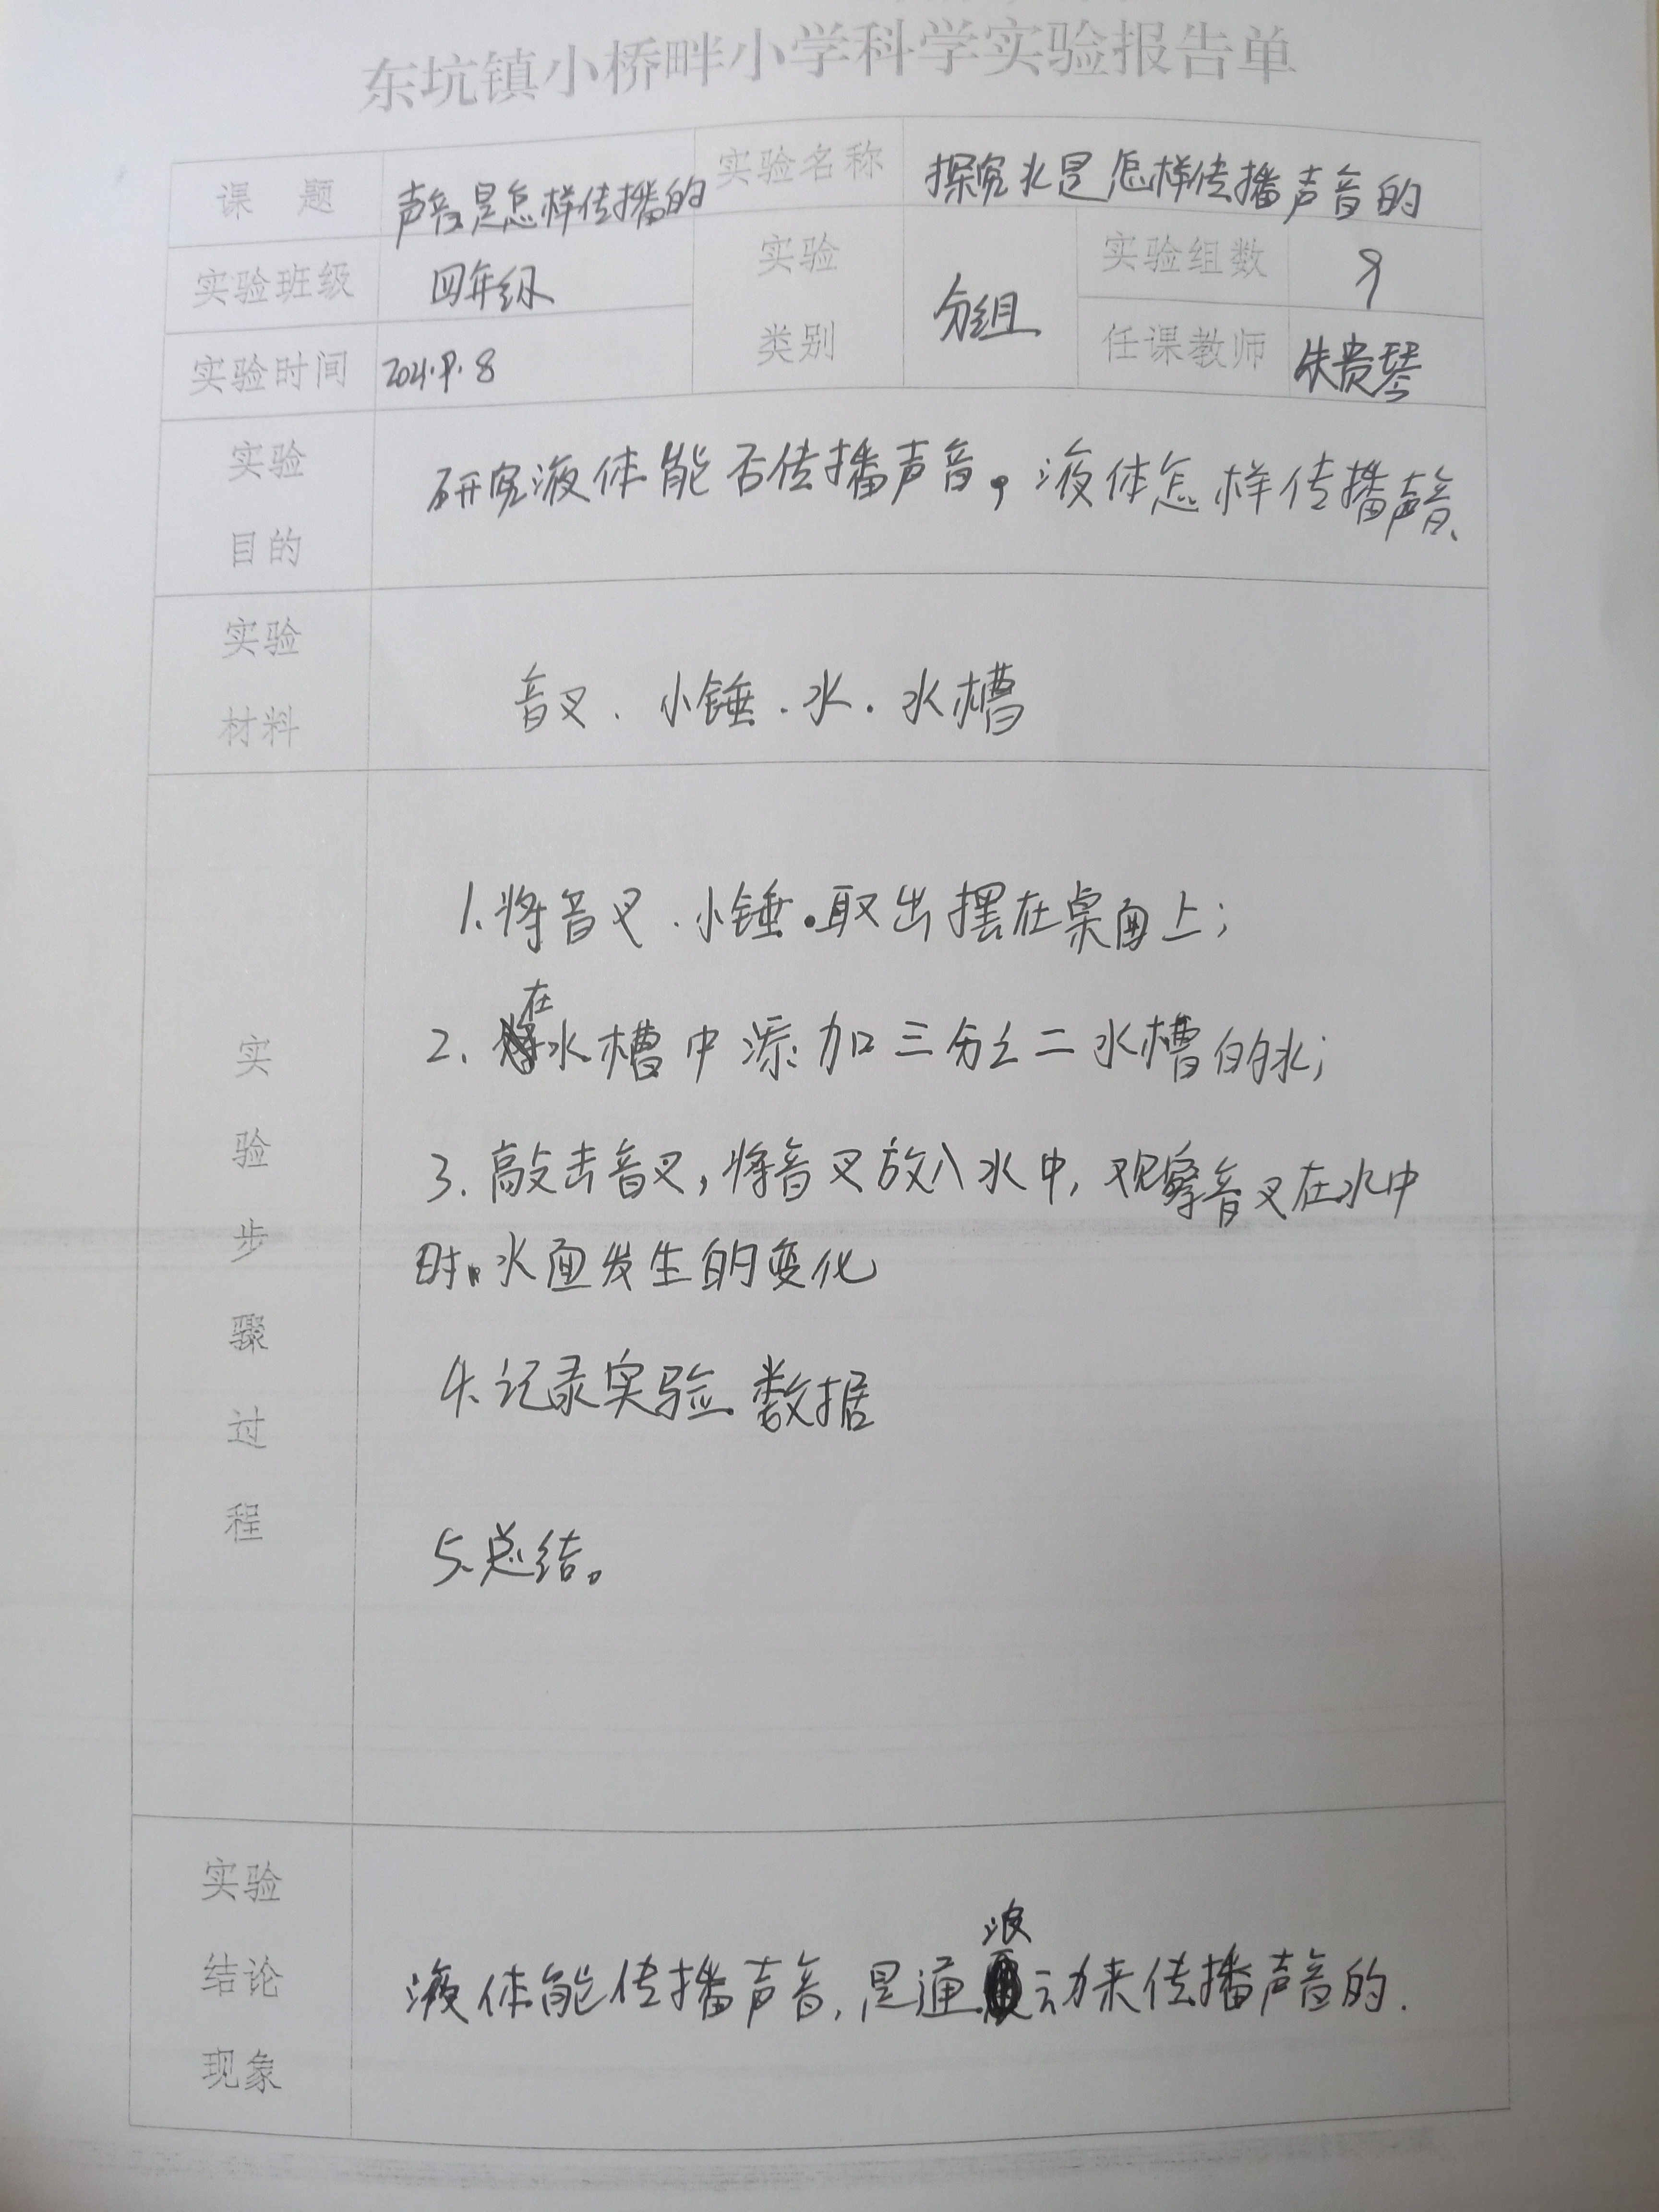 东坑镇小桥畔小学科学实验报告单
课 题 声音是怎样传播的 实验名称 探究水是怎样传播声音的
实验班级 四年级 实验类别 分组 实验组数 9
实验时间 2021.9.8 任课教师 朱贵琴
实验目的 研究液体能否传播声音,液体怎样传播声音、
实验材料 音叉、小锤、水、水槽
实验步骤过程
1.将音叉、小锤.取出摆在桌面上;
2.在水槽中添加三分之二水槽的水;
3.敲击音叉,将音叉放入水中,观察音叉在水中
时.水面发生的变化
4.记录实验数据
5.总结。
实验结论现象 液体能传播声音,是通波动来传播声音的.